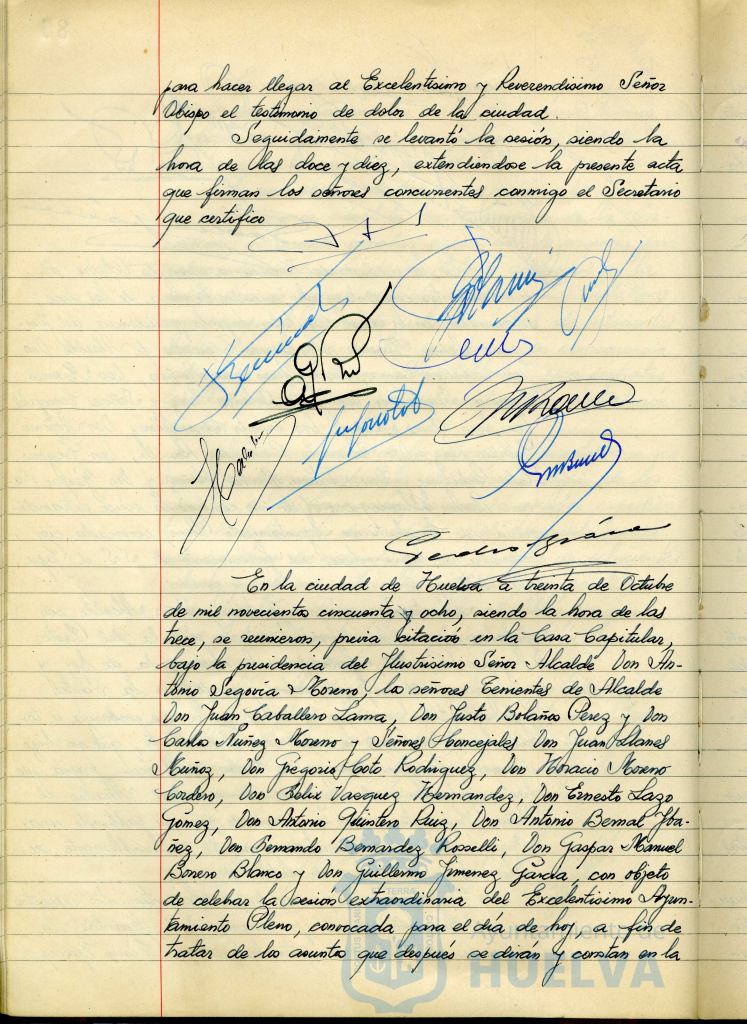 para hacer llegar al Excelentisimo y Reverendisimo Señor
Obispo el testimonio de dolor de la ciudad.
Seguidamente se levantó la sesión, siendo la
hora de las doce y diez, extendiendose la presente acta
que firman los señores concurrentes conmigo el Secretario
que certifico
En la ciudad de Huelva a treinta de Octubre
de mil novecientos cincuenta y ocho, siendo la hora de las
trece, se reunieron, previa citación en la Casa Capitular,
bajo la presidencia del Ilustrisimo Señor Alcalde Don An-
tonio Segovia Moreno, los señores Tenientes de Alcalde
Don Juan Caballero Lama, Don Justo Bolaños Perez y Don
Carlos Nuñez Moreno y Señores Concejales Don Juan Llanes
Muñoz, Don Gregorio Coto Rodriguez, Don Horacio Moreno
Cordero, Don Felix Vazquez Hernandez, Don Ernesto Lazo
Gómez, Don Antonio Quintero Ruiz, Don Antonio Bernal Iba-
ñez, Don Fernando Bernardez Rosselli, Don Gaspar Manuel
Bonero Blanco y Don Guillermo Jimenez Garcia, con objeto
de celebrar la sesion extraordinaria del Excelentisimo Ayun-
tamiento Pleno, convocada para el día de hoy, a fin de
tratar de los asuntos que después se dirán y constan en la
Ayuntamiento de
HUELVA